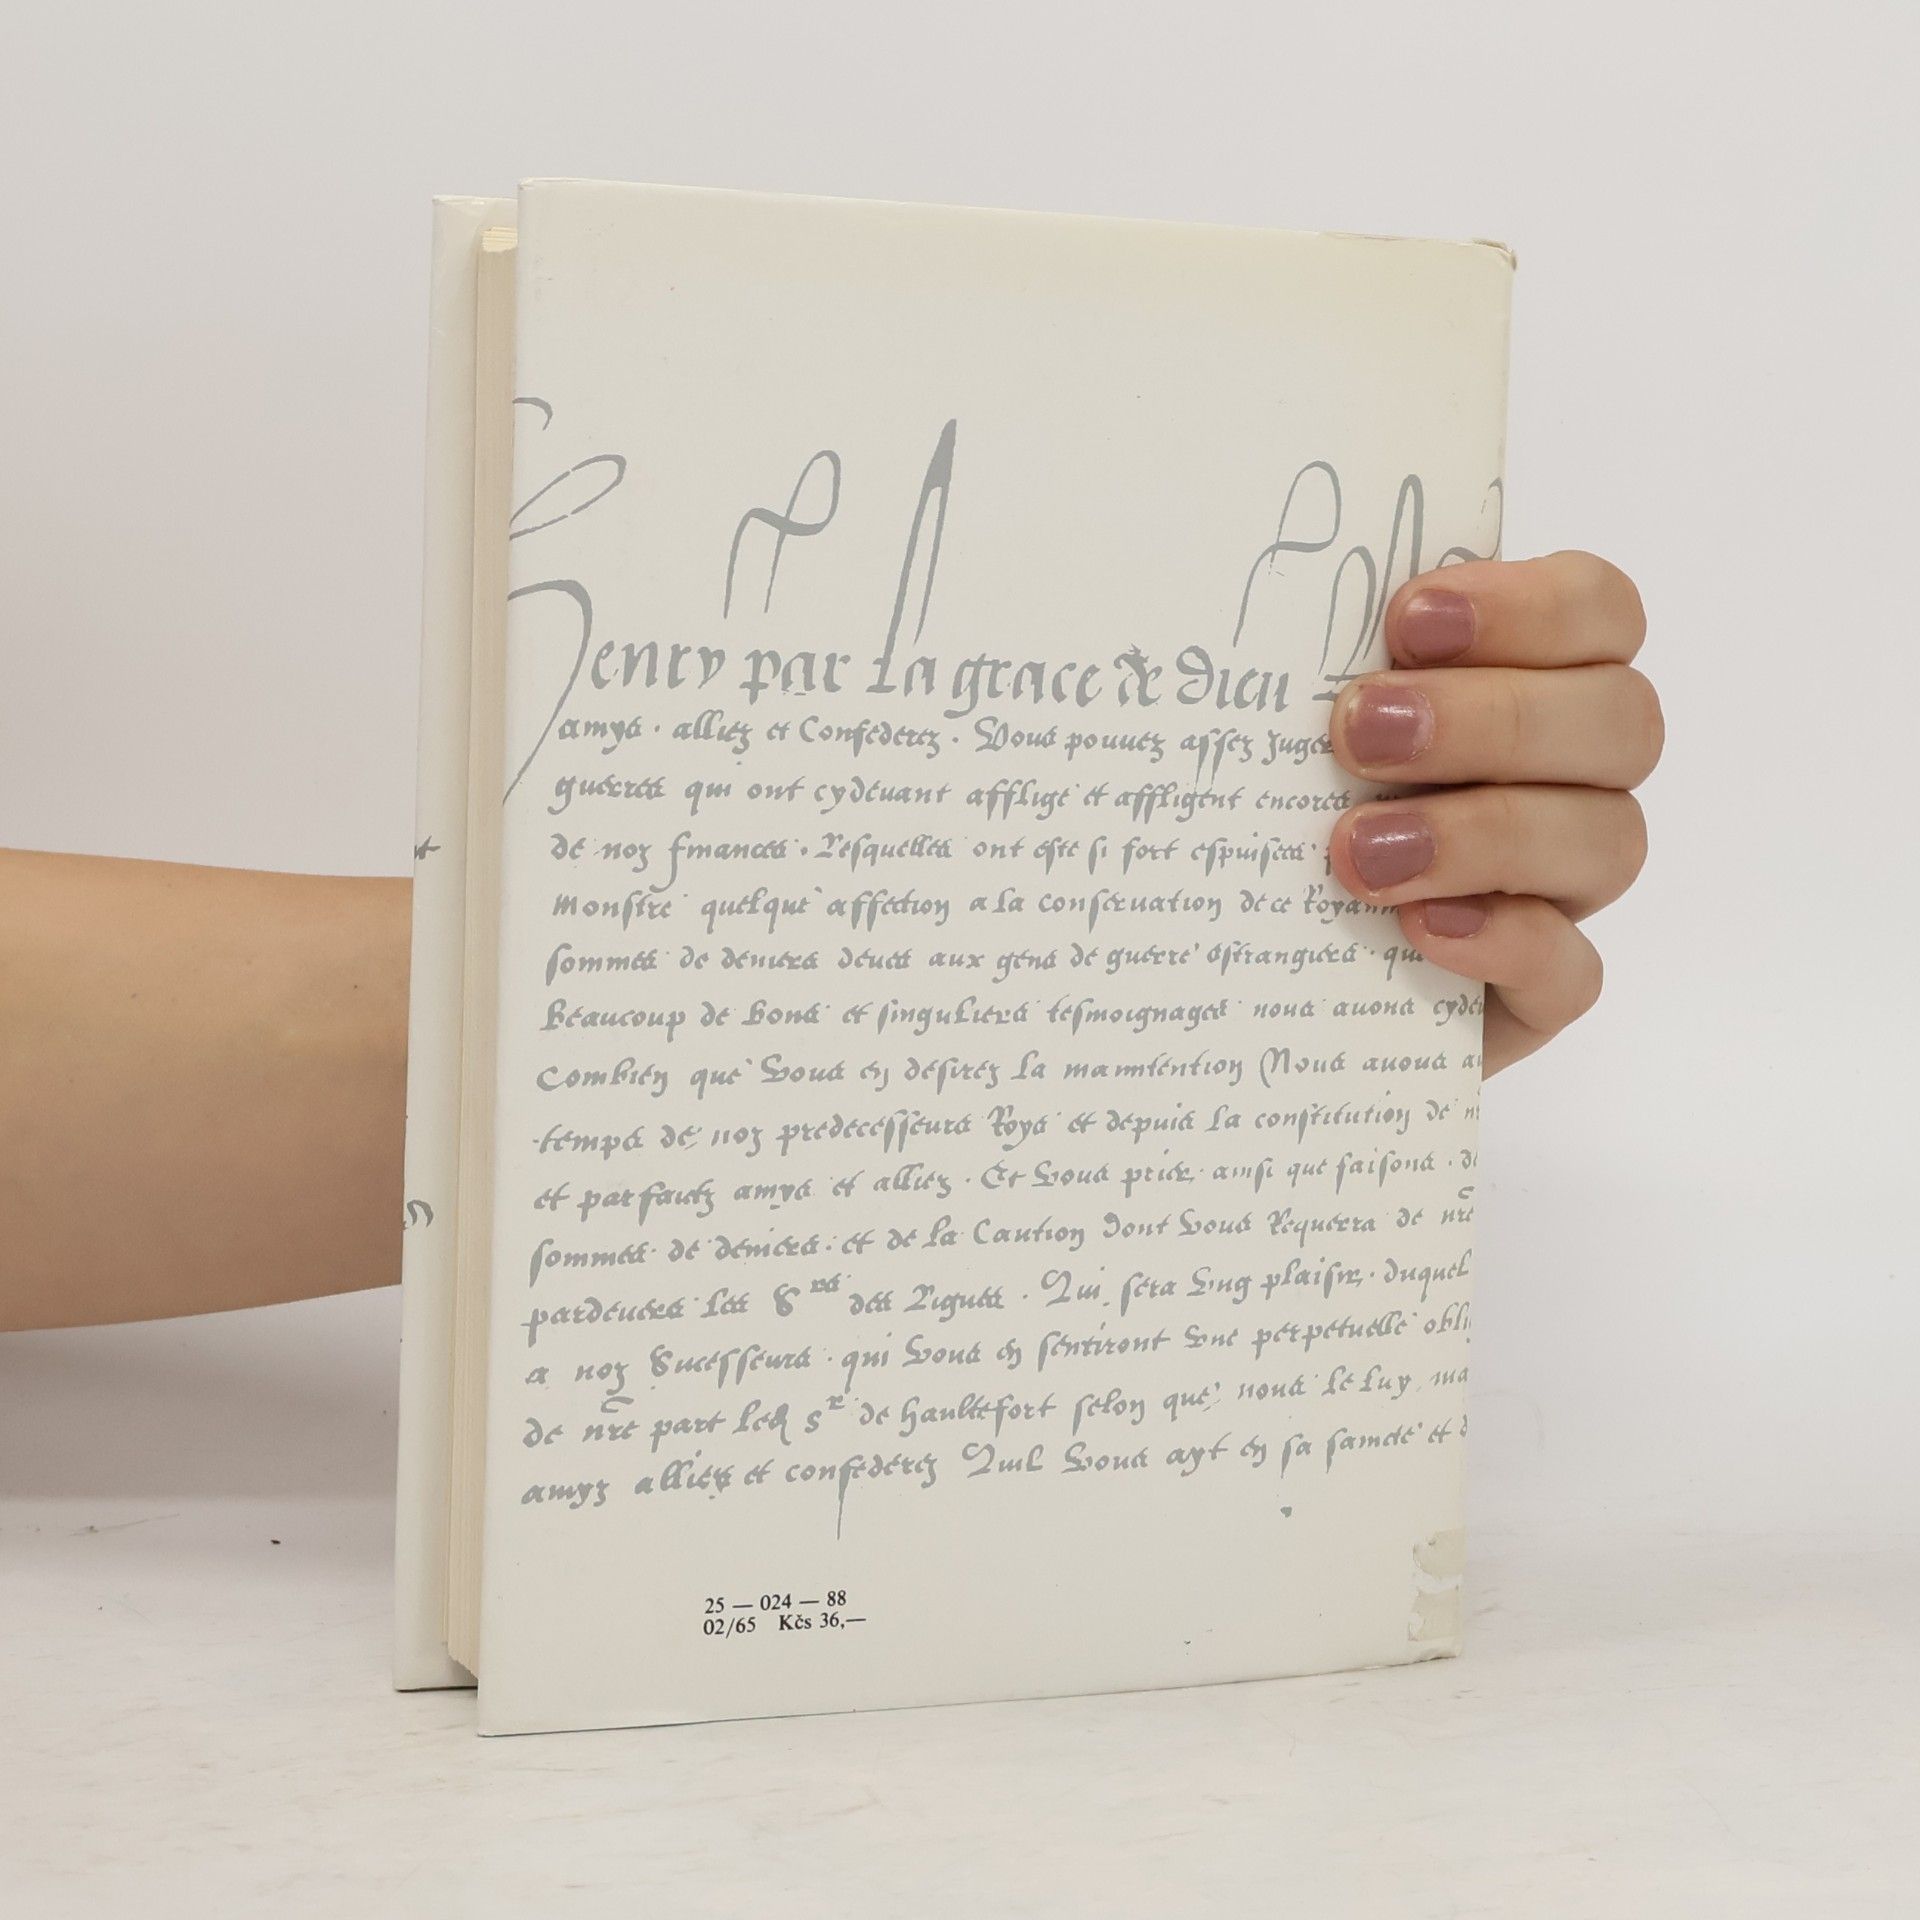 Henry par la grace de dieu
amys · alliez et Confederez · Vous pouvez assez Juger
guerres qui ont cydevant afflige et affligent encores
de noz finances · Lesquelles ont este si fort espuisees
monstre quelque affection a la conservation de ce Royaume
sommes de deniers deues aux gens de guerre estrangiers · qui
beaucoup de bons et singuliers tesmoignages nous avons cyde
Combien que Vous en desirez la manntention Nous avons
temps de noz predecesseurs Roys et depuis la constitution de
et parfaictz amys et alliez · Et vous prier ainsi que faisons · de
sommes de deniers · et de la Caution dont vous Requerra de nre
pardevers les Srs des Ligues · Qui sera Vng plaisir · duquel
a noz Sucesseurs · qui vous en sentiront Vne perpetuelle obli
de nre part led sr de haultefort selon que nous le luy ma
amyz alliez et confederez Quil Vous ayt en sa saincte et d
25 — 024 — 88
02/65 Kčs 36,—